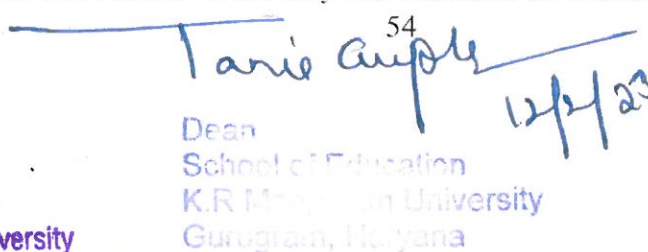 54
Tanie Gupta
12/2/23
Dean
School of Education
K.R Mangalam University
Gurugram, Haryana
versity